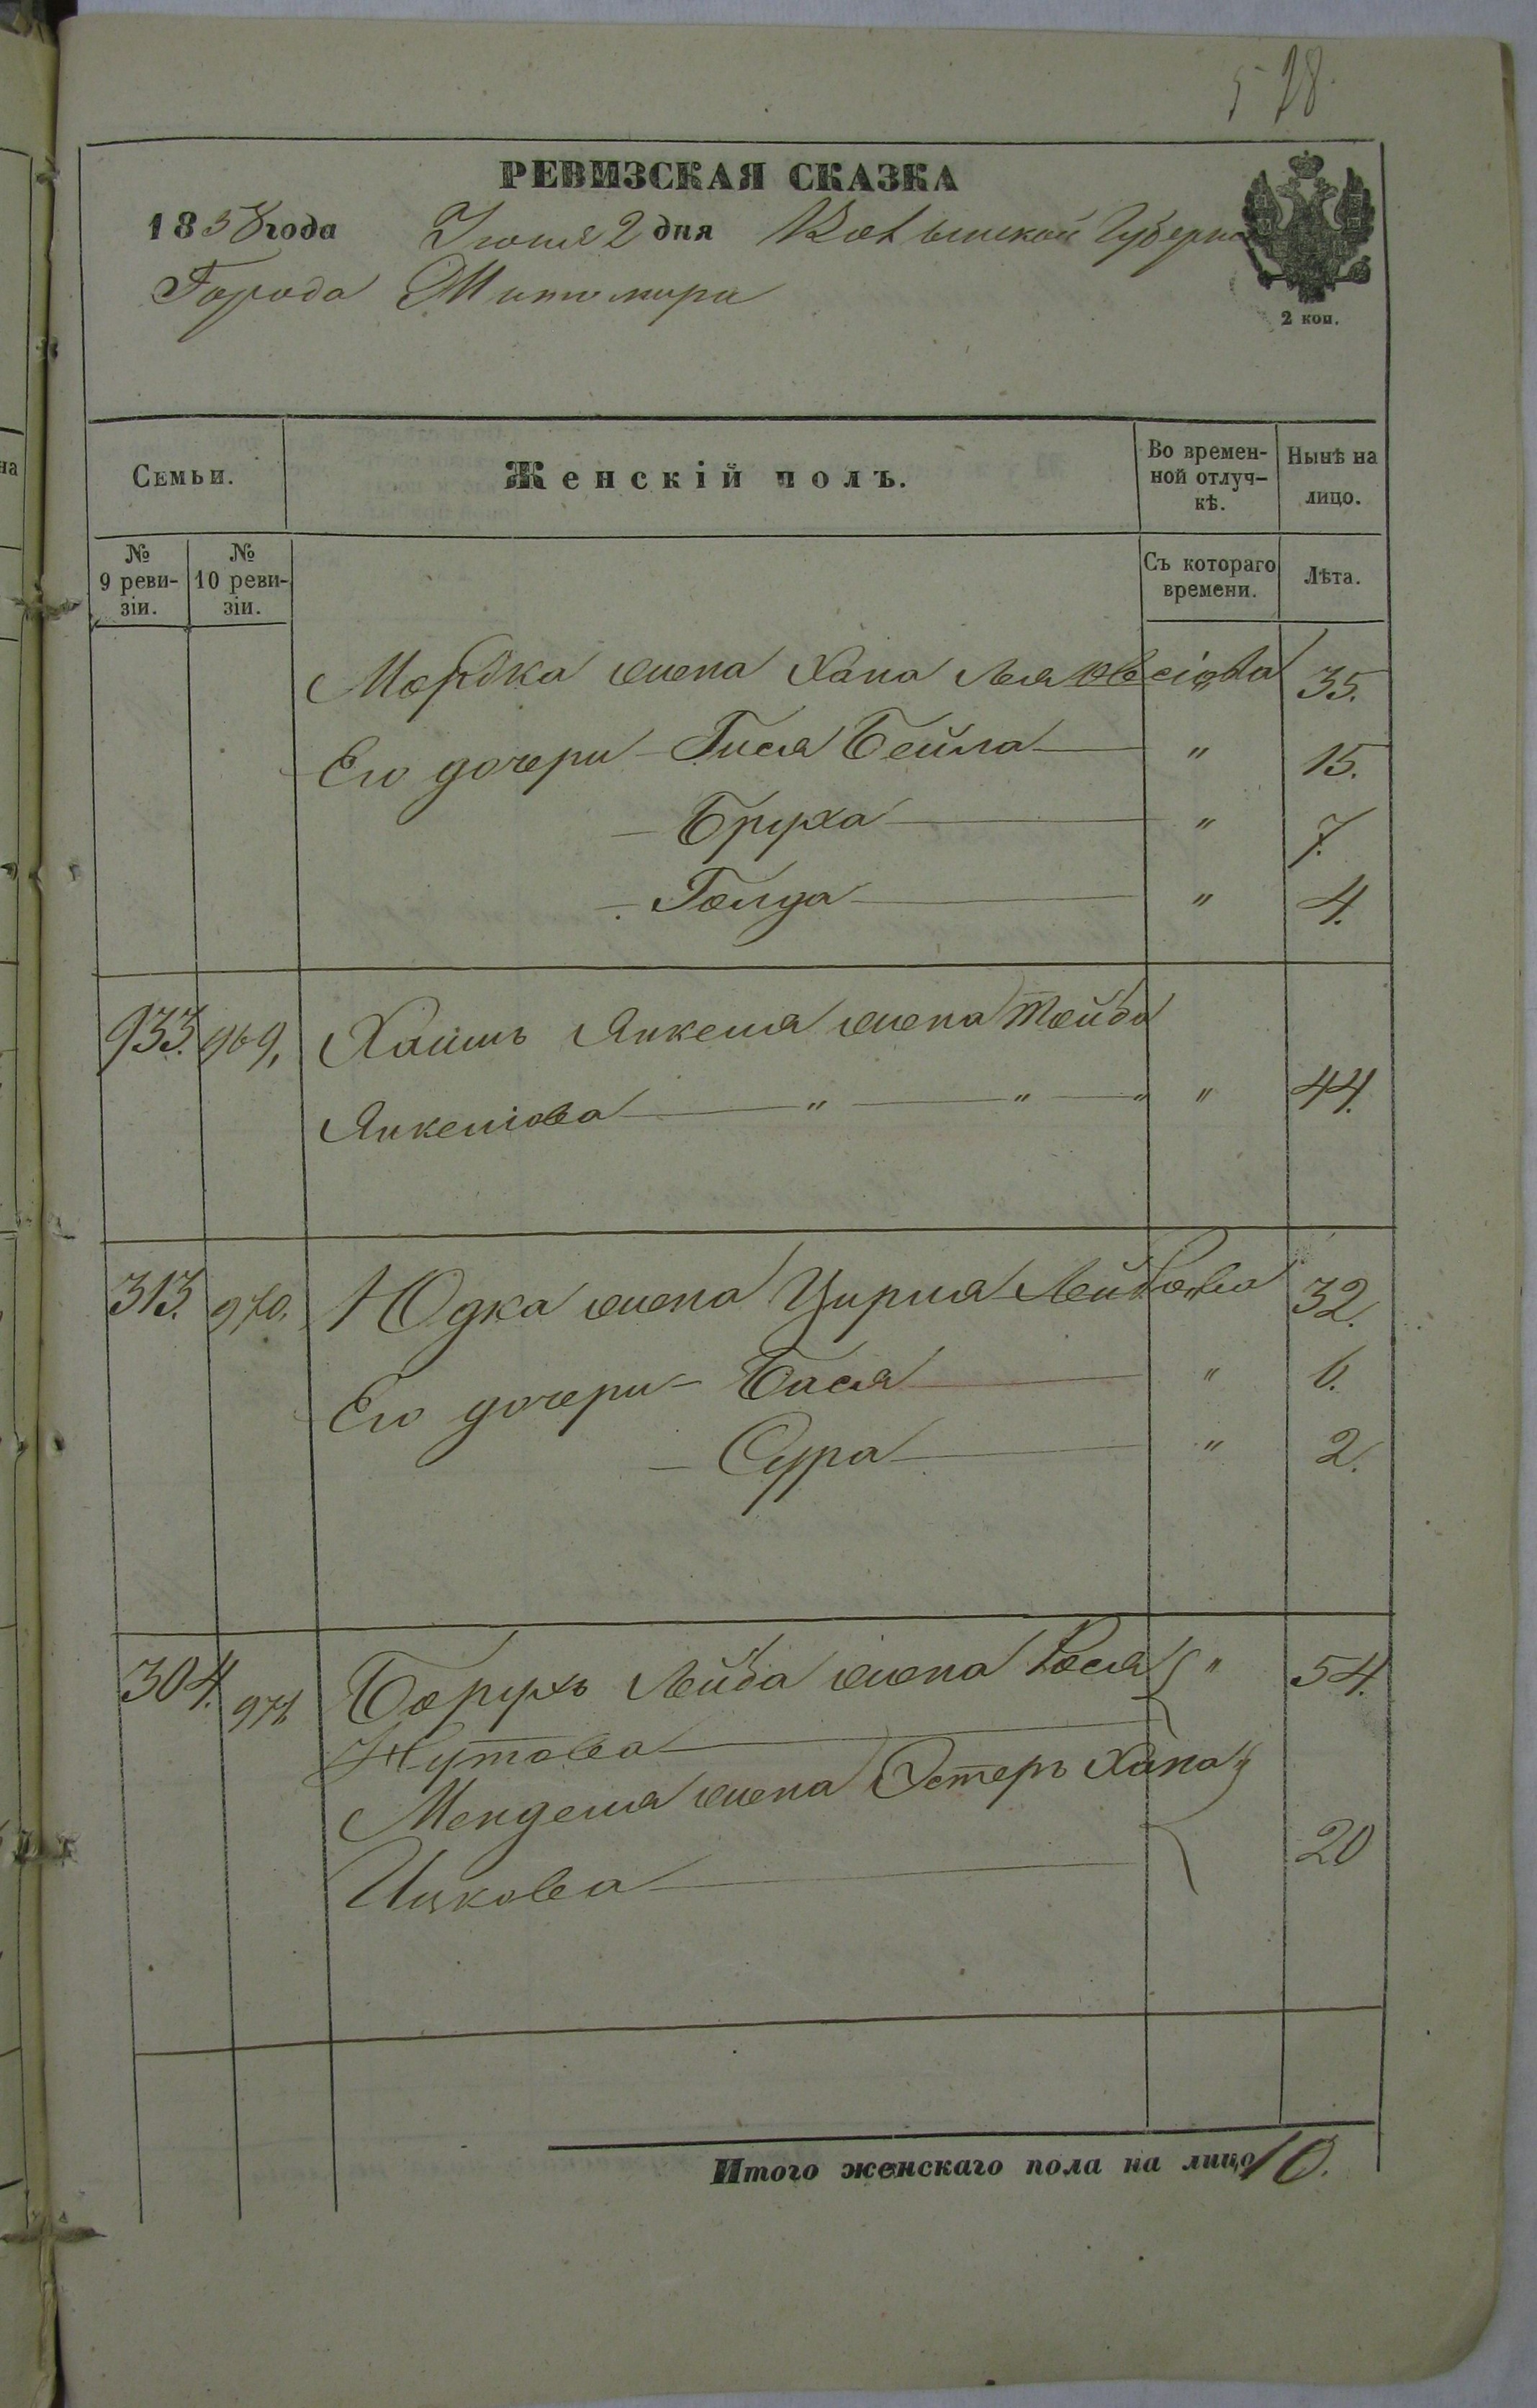 578.
РЕВИЗСКАЯ СКАЗКА
1858 года Іюня 2 дня Волынской Губерніи
Города Житомира
2 коп.
Семьи. Женскій полъ. Во временной отлучкѣ. Нынѣ на лицо.
№ 9 ревизіи. № 10 ревизіи. Съ котораго времени. Лѣта.
Мордка жена Хана Лея 35.
Его дочери - Гися Бейла " 15.
- Бруха " 7.
- Голда " 4.
933. 969. Хаимъ Янкеля жена Тойба
Янкеліова " " " " 44.
313. 970. Юдка жена Цирля Лейбова 32.
Его дочери - Бася " 6.
- Сура " 2.
304. 971. Борухъ Лейба жена Рося " 54.
Нутова
Менделя жена Эстеръ Хана "
Ицкова 20
Итого женскаго пола на лицо 10.